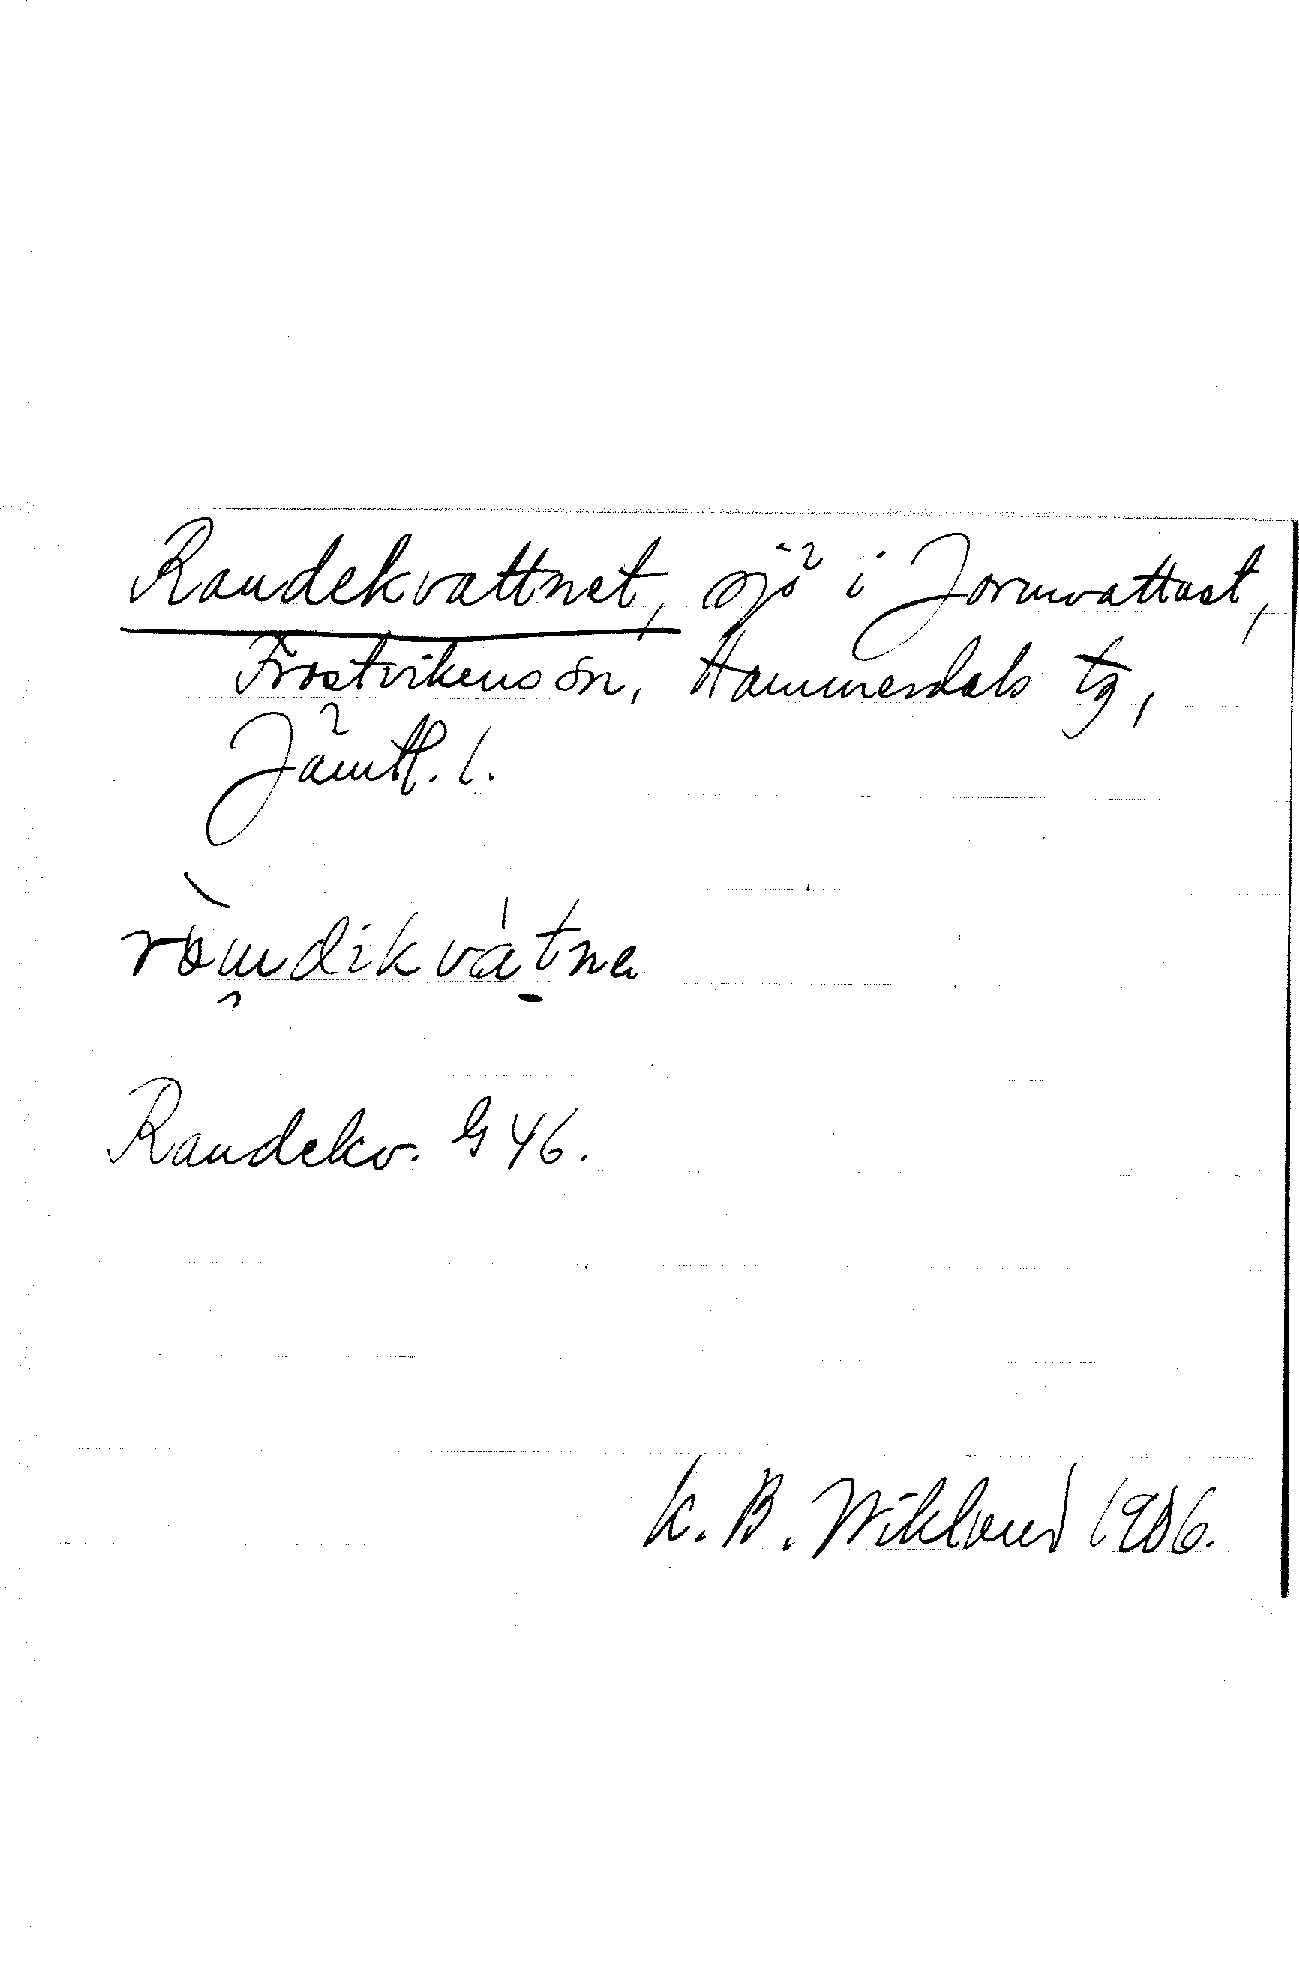 Raudekvattnet, sjö i Jormvattnet,
Frostvikens sn, Hammerdals tg,
Jämtl. l.
ròu̯dikvátna
Raudekv. G 46.
K. B. Wiklund 1906.